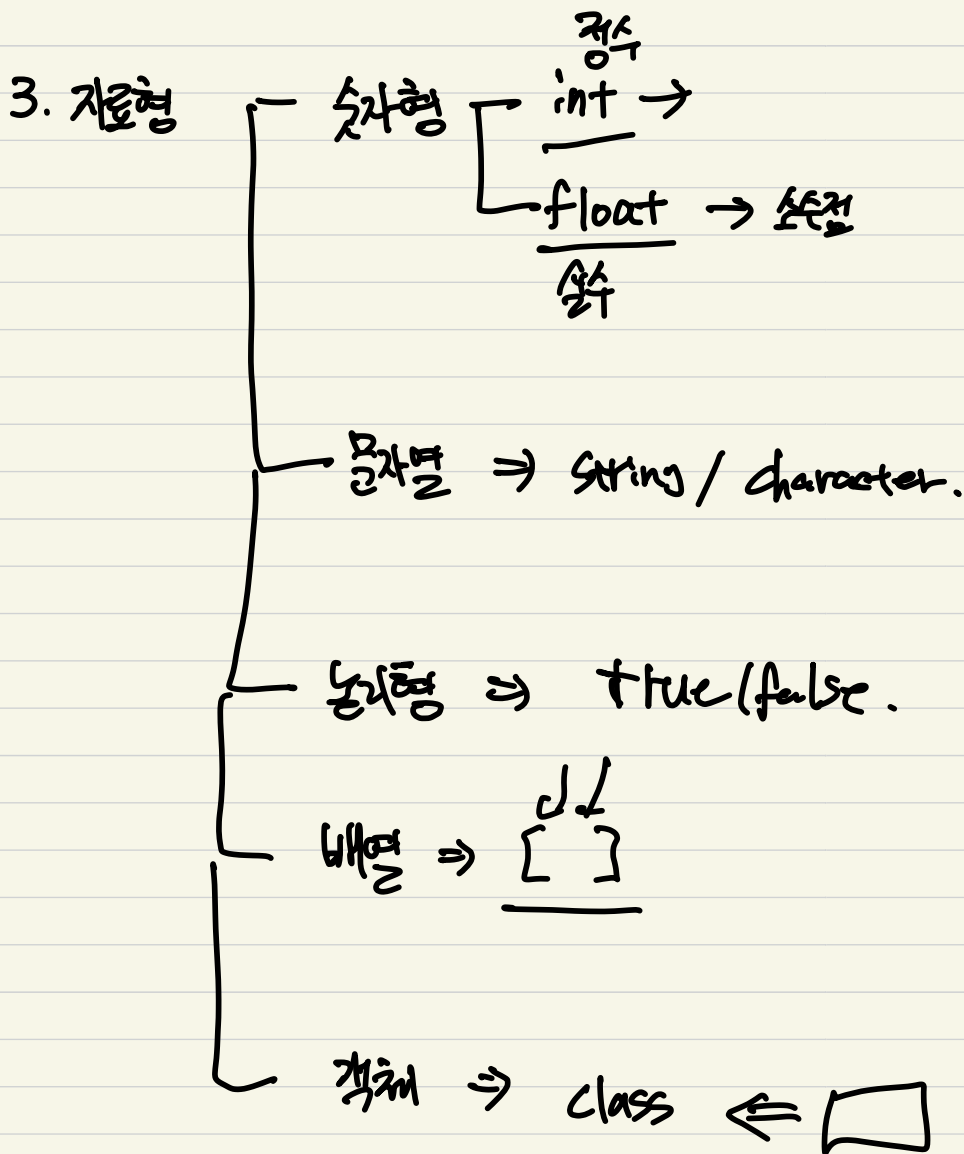 정수
3. 자료형 숫자형 int →
float → 소수점
실수
문자열 ⇒ string / character.
논리형 ⇒ true/false.
배열 ⇒ [ ]
객체 ⇒ class ⇐